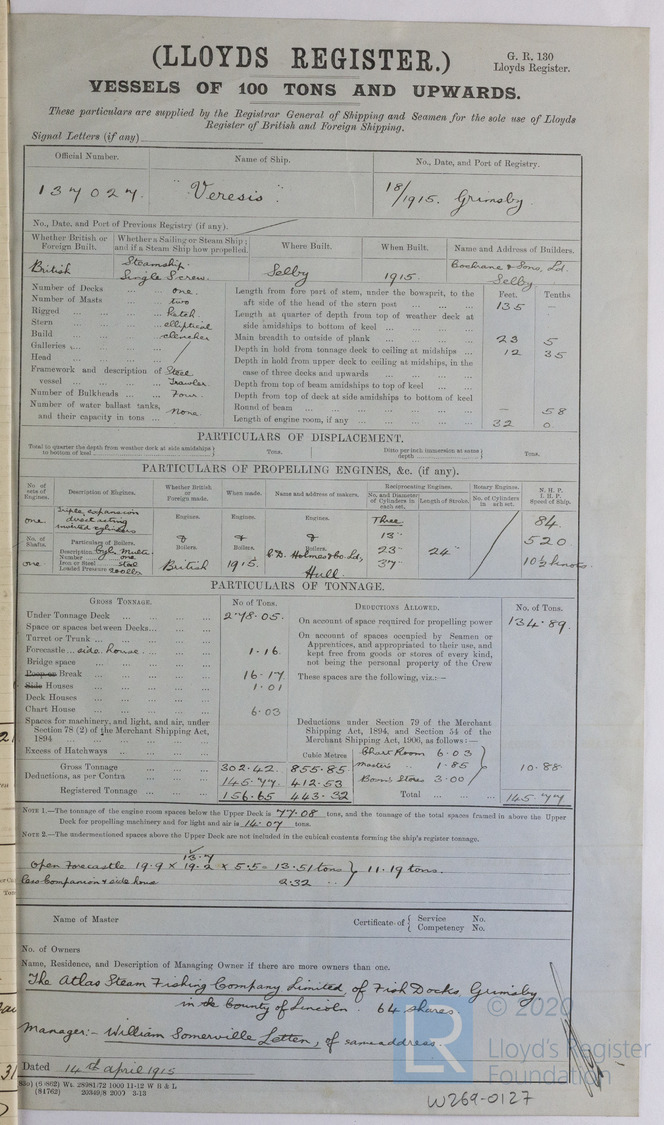 (LLOYDS REGISTER.)
G. R. 130
Lloyds Register.
VESSELS OF 100 TONS AND UPWARDS.
These particulars are supplied by the Registrar General of Shipping and Seamen for the sole use of Lloyds
Register of British and Foreign Shipping.
Signal Letters (if any)
Official Number. Name of Ship. No., Date, and Port of Registry.
137027. "Veresis" 18/1915. Grimsby.
No., Date, and Port of Previous Registry (if any).
Whether British or Foreign Built. Whether a Sailing or Steam Ship; and if a Steam Ship how propelled. Where Built. When Built. Name and Address of Builders.
British Steamship. Single Screw. Selby 1915. Cochrane & Sons, Ld. Selby
Number of Decks one.
Number of Masts two
Rigged Ketch.
Stern elliptical
Build clencher
Galleries
Head
Framework and description of vessel Steel Trawler.
Number of Bulkheads Four.
Number of water ballast tanks, and their capacity in tons None.
Feet. Tenths
Length from fore part of stem, under the bowsprit, to the aft side of the head of the stern post 135 —
Length at quarter of depth from top of weather deck at side amidships to bottom of keel
Main breadth to outside of plank 23 5
Depth in hold from tonnage deck to ceiling at midships 12 35
Depth in hold from upper deck to ceiling at midships, in the case of three decks and upwards
Depth from top of beam amidships to top of keel
Depth from top of deck at side amidships to bottom of keel
Round of beam — 58
Length of engine room, if any 32 0
PARTICULARS OF DISPLACEMENT.
Total to quarter the depth from weather deck at side amidships to bottom of keel Tons. Ditto per inch immersion at same depth Tons.
PARTICULARS OF PROPELLING ENGINES, &c. (if any).
No. of sets of Engines. Description of Engines. Whether British or Foreign made. When made. Name and address of makers. Reciprocating Engines. Rotary Engines. N. H. P. I. H. P. Speed of Ship.
No. and Diameter of Cylinders in each set. Length of Stroke. No. of Cylinders in each set.
one Triple expansion direct acting inverted cylinders Engines. Engines. Engines. Three 13" 23" 37" 24" 84. 520. 10½ knots.
No. of Shafts. Particulars of Boilers. & & &
Boilers. Boilers. Boilers.
Description Cyl. Multr.
Number one
one Iron or Steel steel British 1915. C.D. Holmes & Co. Ld, Hull.
Loaded Pressure 200 lbs
PARTICULARS OF TONNAGE.
GROSS TONNAGE. No of Tons. DEDUCTIONS ALLOWED. No. of Tons.
Under Tonnage Deck 278.05.
Space or spaces between Decks
Turret or Trunk
Forecastle side house 1.16.
Bridge space
Poop or Break 16.17
Side Houses 1.01
Deck Houses
Chart House 6.03
Spaces for machinery, and light, and air, under Section 78 (2) of the Merchant Shipping Act, 1894
Excess of Hatchways
On account of space required for propelling power 134.89.
On account of spaces occupied by Seamen or Apprentices, and appropriated to their use, and kept free from goods or stores of every kind, not being the personal property of the Crew
These spaces are the following, viz.:—
Deductions under Section 79 of the Merchant Shipping Act, 1894, and Section 54 of the Merchant Shipping Act, 1906, as follows:—
Cubic Metres
Chart Room 6.03
Master's " 1.85 10.88
Bosn's Stores 3.00
Gross Tonnage 302.42. 855.85
Deductions, as per Contra 145.77. 412.53
Registered Tonnage 156.65 443.32
Total 145.77
NOTE 1.—The tonnage of the engine room spaces below the Upper Deck is 77.08 tons, and the tonnage of the total spaces framed in above the Upper
Deck for propelling machinery and for light and air is 14.07 tons.
NOTE 2.—The undermentioned spaces above the Upper Deck are not included in the cubical contents forming the ship's register tonnage.
13.7
Open Forecastle 19.9 × 19.2 × 5.5 = 13.51 tons } 11.19 tons.
less Companion & side house 2.32 "
Name of Master
Certificate of { Service No.
Competency No.
No. of Owners
Name, Residence, and Description of Managing Owner if there are more owners than one.
The Atlas Steam Fishing Company Limited of Fish Docks, Grimsby
in the County of Lincoln. 64 shares.
Manager:- William Somerville Letten, of same address.
Dated 14th April 1915
(81762) 20349/8 2000 3-13
LR © 2020
Lloyd's Register
Foundation
W269-0127